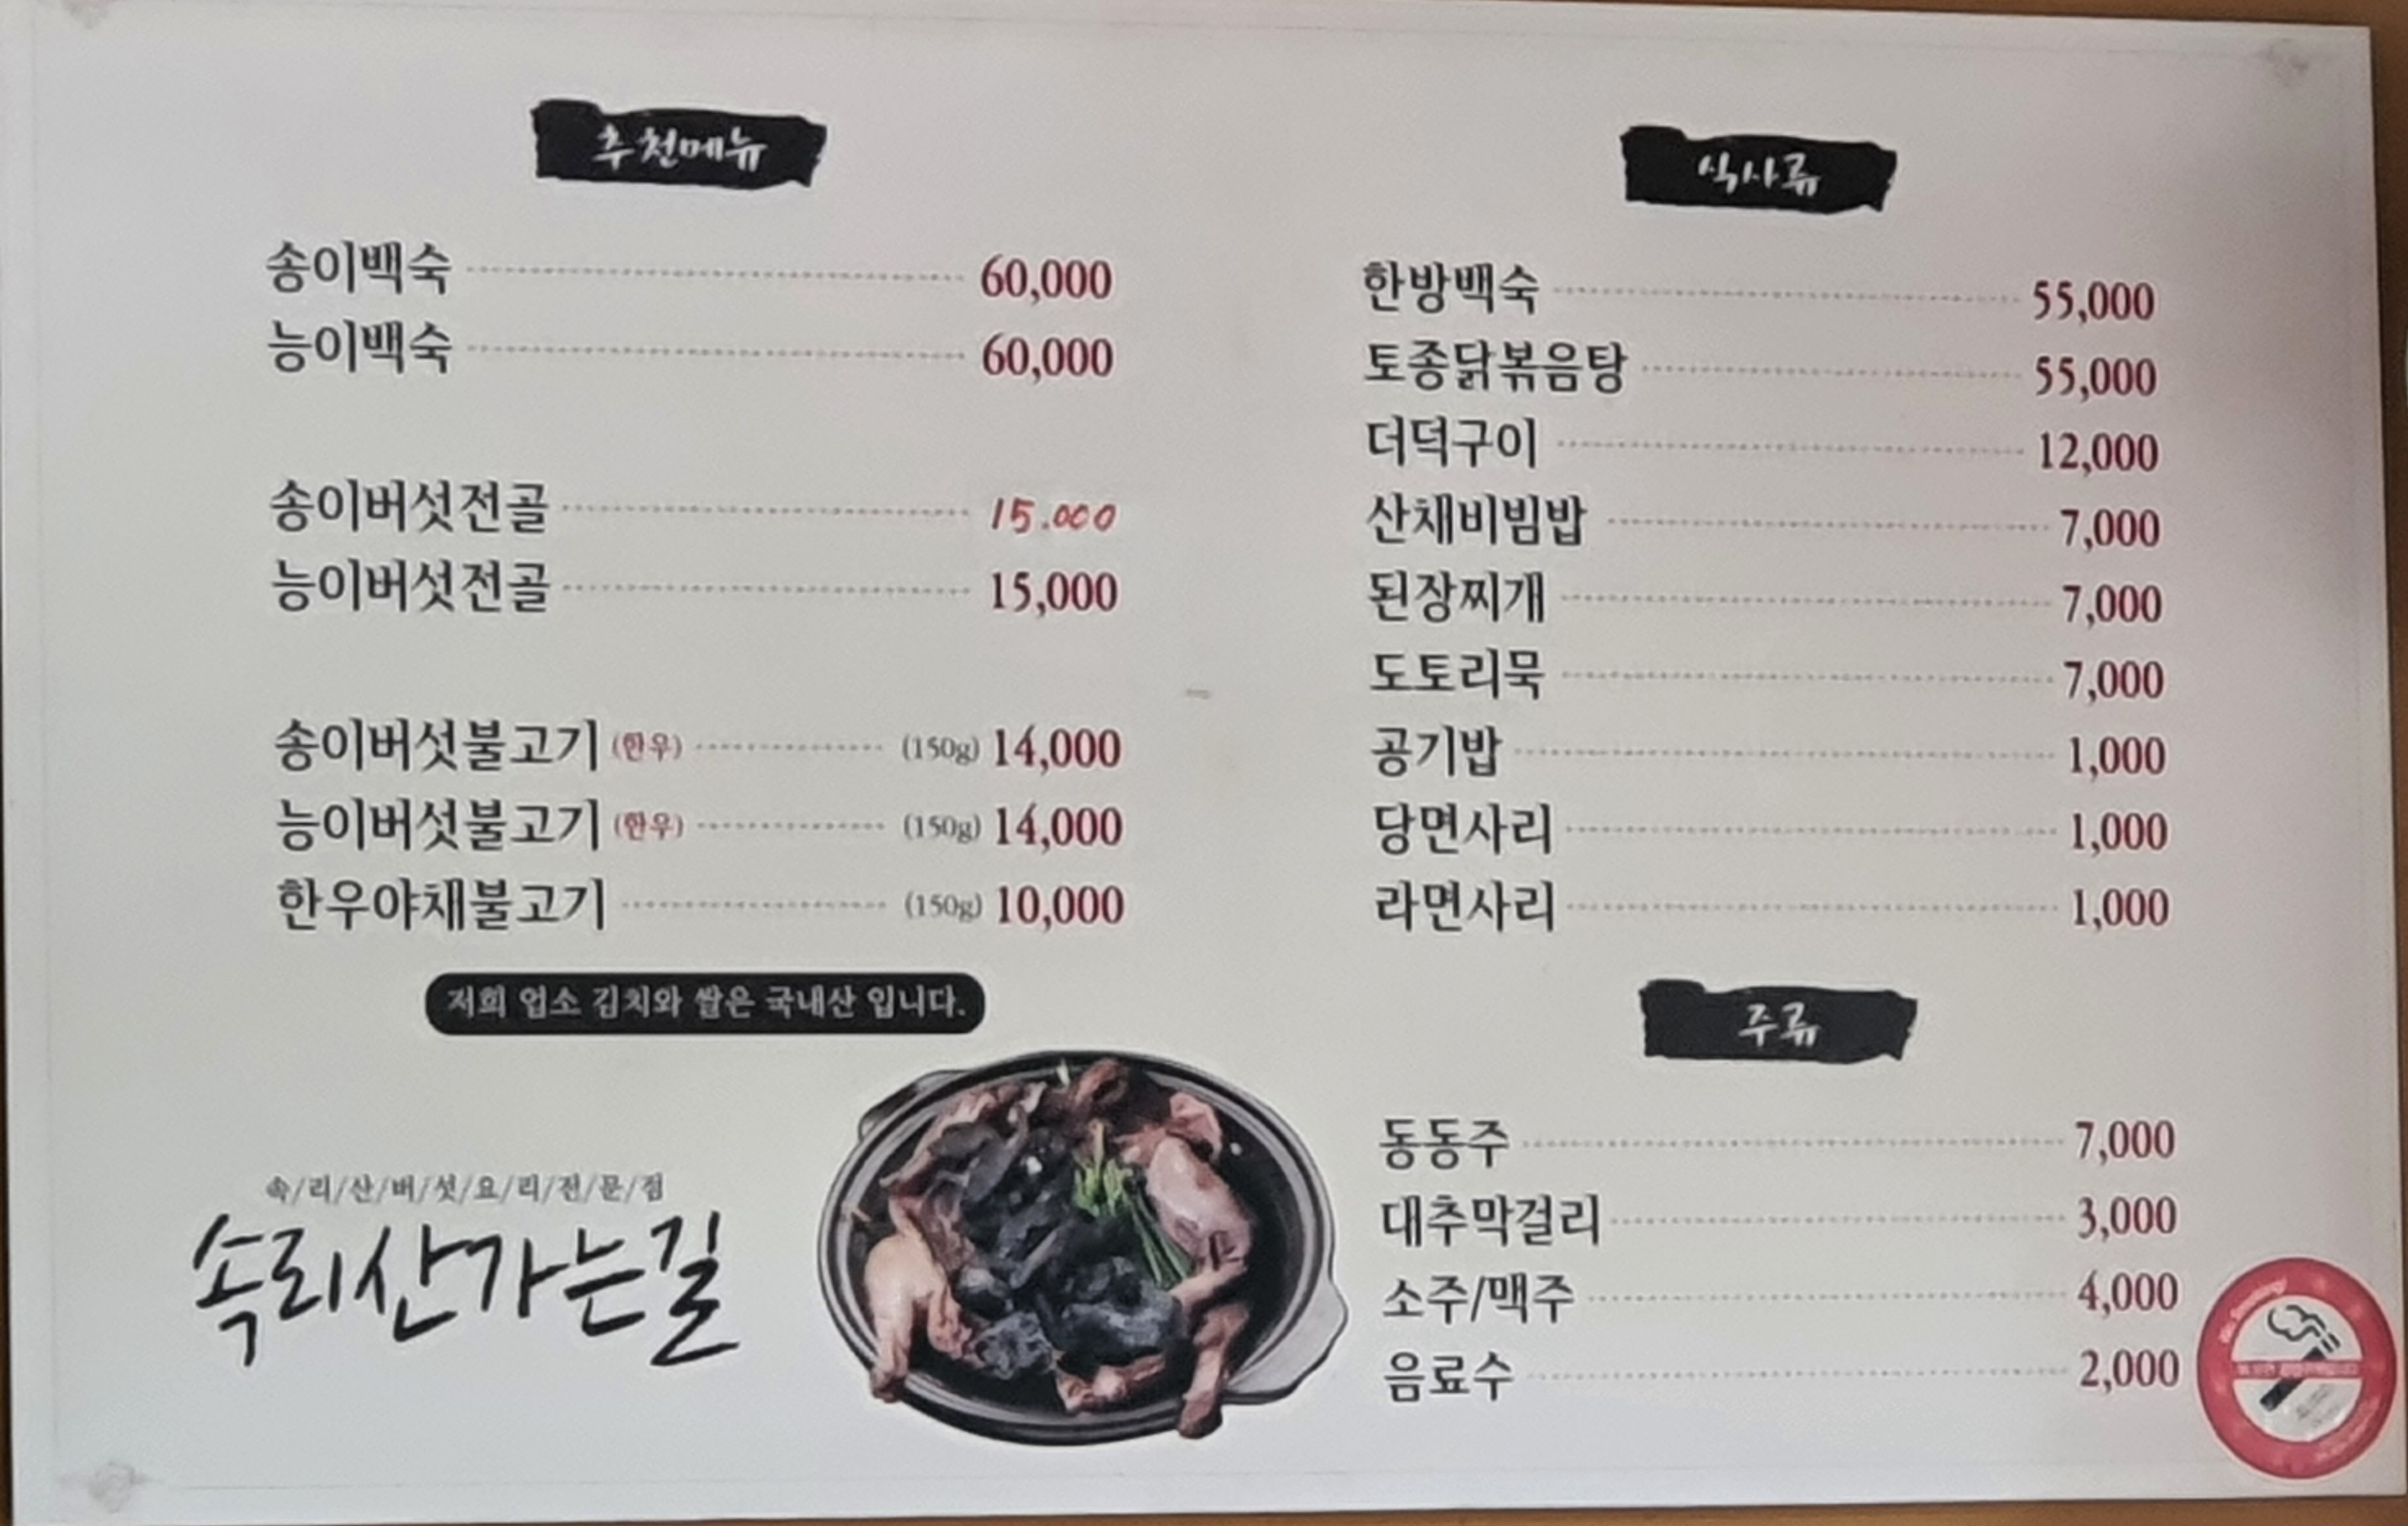 추천메뉴
송이백숙 60,000
능이백숙 60,000
송이버섯전골 15.000
능이버섯전골 15,000
송이버섯불고기 (한우) (150g) 14,000
능이버섯불고기 (한우) (150g) 14,000
한우야채불고기 (150g) 10,000
저희 업소 김치와 쌀은 국내산 입니다.
속/리/산/버/섯/요/리/전/문/점
속리산가는길
식사류
한방백숙 55,000
토종닭볶음탕 55,000
더덕구이 12,000
산채비빔밥 7,000
된장찌개 7,000
도토리묵 7,000
공기밥 1,000
당면사리 1,000
라면사리 1,000
주류
동동주 7,000
대추막걸리 3,000
소주/맥주 4,000
음료수 2,000
No Smoking